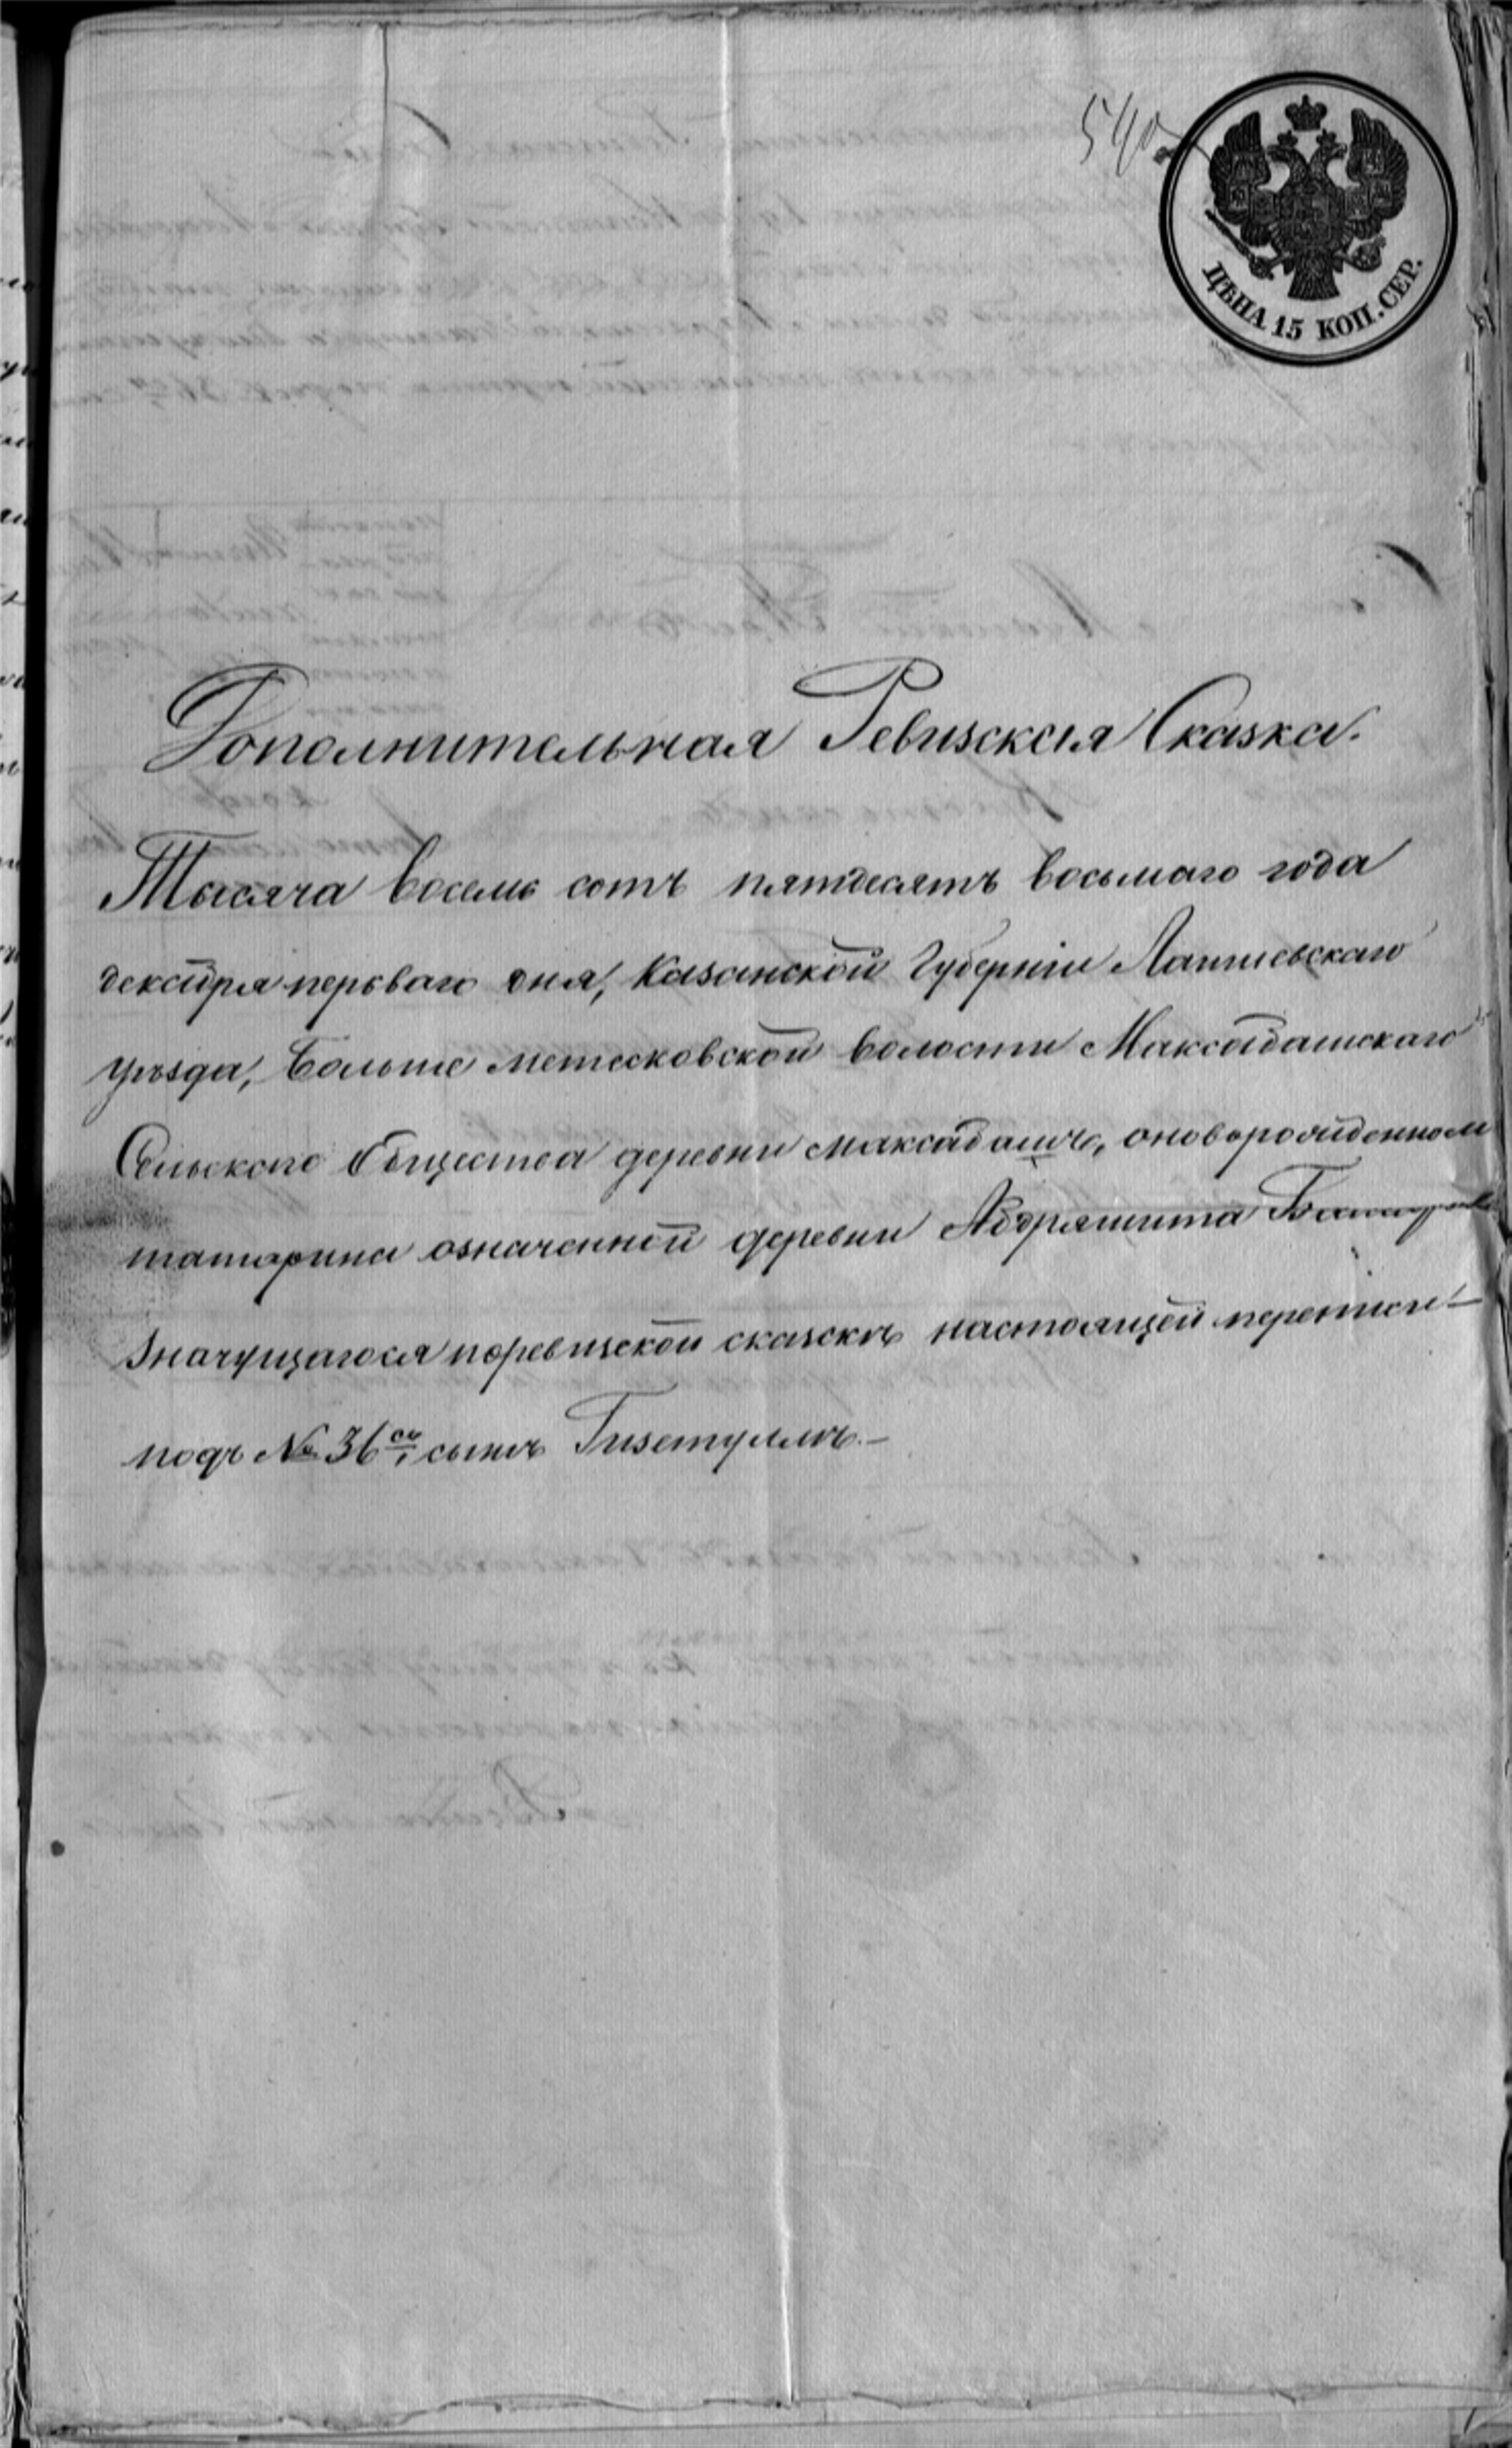 540
ЦѢНА 15 КОП. СЕР.
Дополнительная Ревизская Сказка.
Тысяча восемь сотъ пятдесятъ восьмаго года
декабря перваго дня, Казанской Губерніи Лаишевскаго
уѣзда, Больше метесковской волости Максабашскаго
Сельскаго Общества деревни Максабашъ, оноворожденномъ
татарина означенной деревни Абдряшита
Значущагося поревизской сказкѣ настоящей переписи
подъ № 36см, сынѣ Гизетуллѣ.—